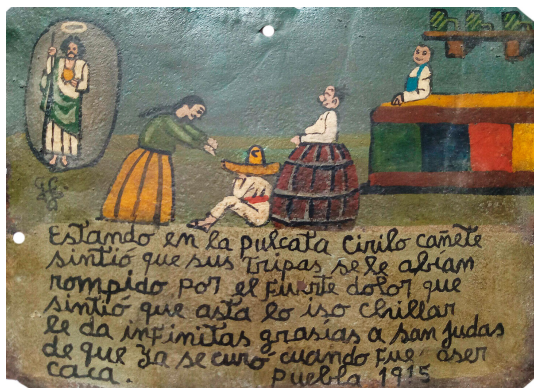 Estando en la pulcata Cirilo cañete
sintió que sus tripas se le abian
rompido por el fuerte dolor que
sintió que asta lo iso chillar
le da infinitas grasias a San Judas
de que ya se curó cuando fue aser
caca. Puebla 1915